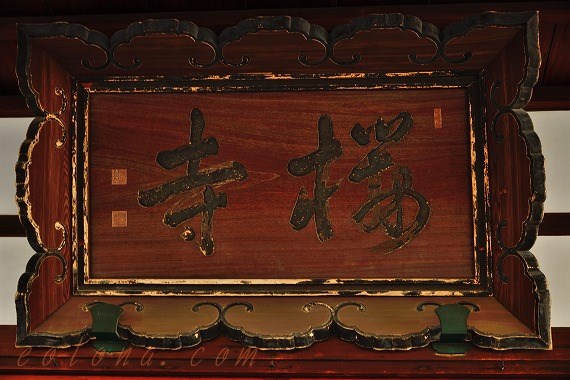 櫻寺
eolona. com